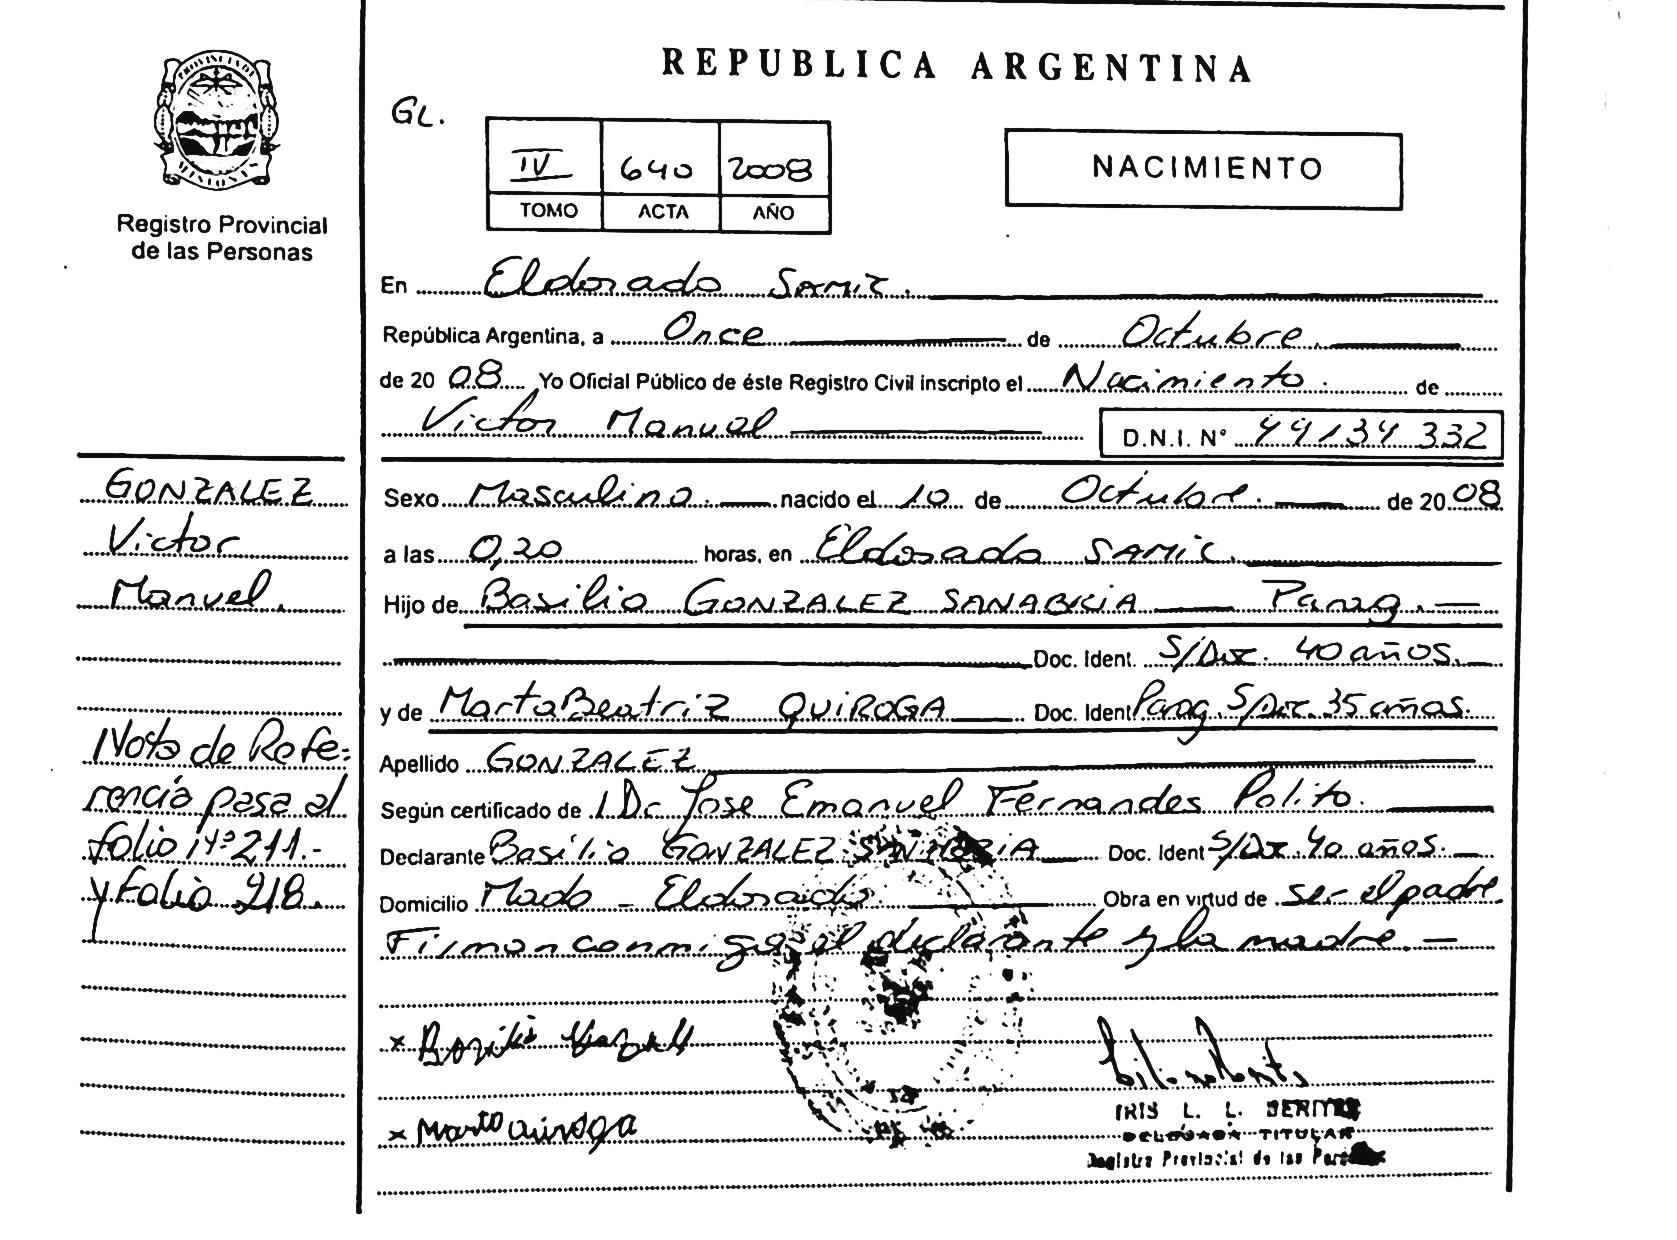 PROVINCIA DE
MISIONES
Registro Provincial
de las Personas
GONZALEZ
Victor
Manuel.
Nota de Refe=
rencia pasa al
folio Nº 211.-
y Folio 218.
REPUBLICA ARGENTINA
GL.
IV 640 2008
TOMO ACTA AÑO
NACIMIENTO
En Eldorado SAMIC.
República Argentina, a Once de Octubre.
de 20 08 Yo Oficial Público de éste Registro Civil inscripto el Nacimiento. de
Victor Manuel D.N.I. N° 49134 332
Sexo Masculino. nacido el 10 de Octubre. de 20 08
a las 0,20 horas, en Eldorado SAMIC.
Hijo de Basilio GONZALEZ SANABRIA Parag.
Doc. Ident. S/Doc. 40 años.
y de Marta Beatriz QUIROGA Doc. Ident Parag. S/Doc. 35 años.
Apellido GONZALEZ
Según certificado de Dr Jose Emanuel Fernandes Polito.
Declarante Basilio GONZALEZ SANABRIA Doc. Ident S/Doc. 40 años.
Domicilio Mado - Eldorado. Obra en virtud de ser el padre
Firman conmigo el declarante y la madre.
x Basilio
x Marta Quiroga
IRIS L. L. BENITEZ
DELEGADA TITULAR
Registro Provincial de las Personas